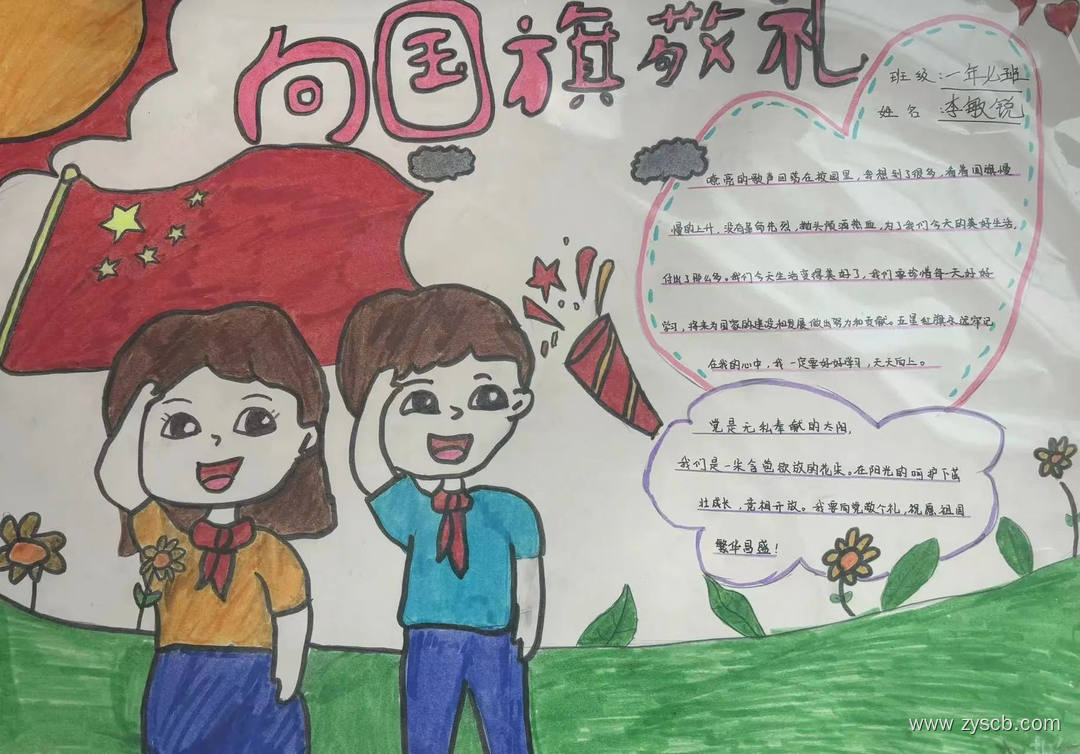 向国旗敬礼
班级:一年七班
姓名 李敏锐
嘹亮的歌声回荡在校园里,我想到了很多,看着国旗慢
慢的上升,没有革命先烈,抛头颅洒热血,为了我们今天的美好生活,
付出了那么多。我们今天生活变得美好了,我们要珍惜每一天好好
学习,将来为国家的建设和发展做出努力和贡献。五星红旗永远牢记
在我的心中,我一定要好好学习,天天向上。
党是无私奉献的太阳,
我们是一朵含苞欲放的花朵。在阳光的呵护下茁
壮成长,竞相开放。我要向党敬个礼,祝愿祖国
繁华昌盛!
www.zyscb.com